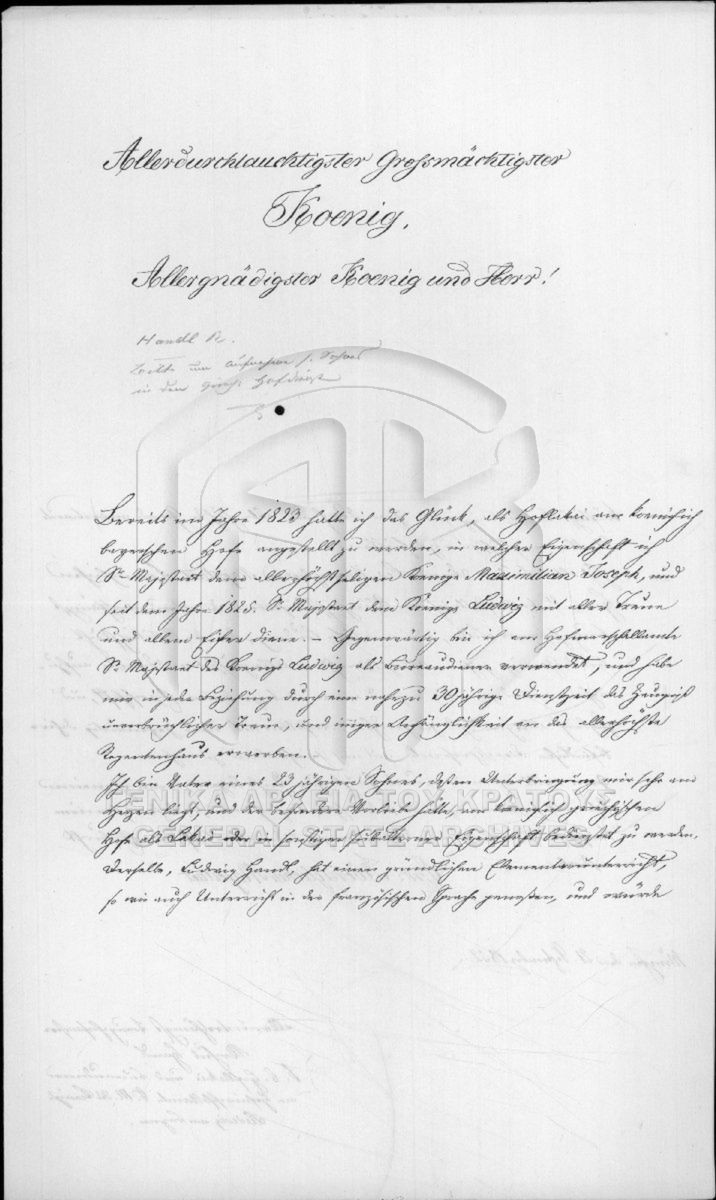 Allerdurchlauchtigster Grossmächtigster
Koenig,
Allergnädigster Koenig und Herr!
Handl R.
Bitte um Aufnahme s. Sohnes
in den griech. Hofdienst
Bereits im Jahre 1823 hatte ich das Glück, als Hoflakai am koeniglich
bayerschen Hofe angestellt zu werden, in welcher Eigenschaft ich
Sr Majestaet dem allerhöchstseligen Koenige Maximilian Joseph, und
seit dem Jahre 1825. Sr Majestaet dem Koenige Ludwig mit aller Treue
und allem Eifer diene. – Gegenwärtig bin ich am Hofmarschallamte
Sr Majestaet des Koenigs Ludwig als Bureaudiener verwendet, und habe
mir in jeder Beziehung durch eine nahezu 30jährige Dienstzeit das Zeugniß
unverbrüchlicher Treue, und inniger Anhänglichkeit an das allerhöchste
Regentenhaus erworben.
Ich bin Vater eines 23 jährigen Sohnes, dessen Unterbringung mir sehr am
Herzen liegt, und der besondere Vorliebe hätte, am koeniglich griechischen
Hofe als Lakai oder in sonstiger subalterner Eigenschaft bedienstet zu werden.
Derselbe, Ludwig Handl, hat einen gründlichen Elementarunterricht,
so wie auch Unterricht in der französischen Sprache genoßen, und würde
ΓΕΝΙΚΑ ΑΡΧΕΙΑ ΤΟΥ ΚΡΑΤΟΥΣ
GENERAL STATE ARCHIVES